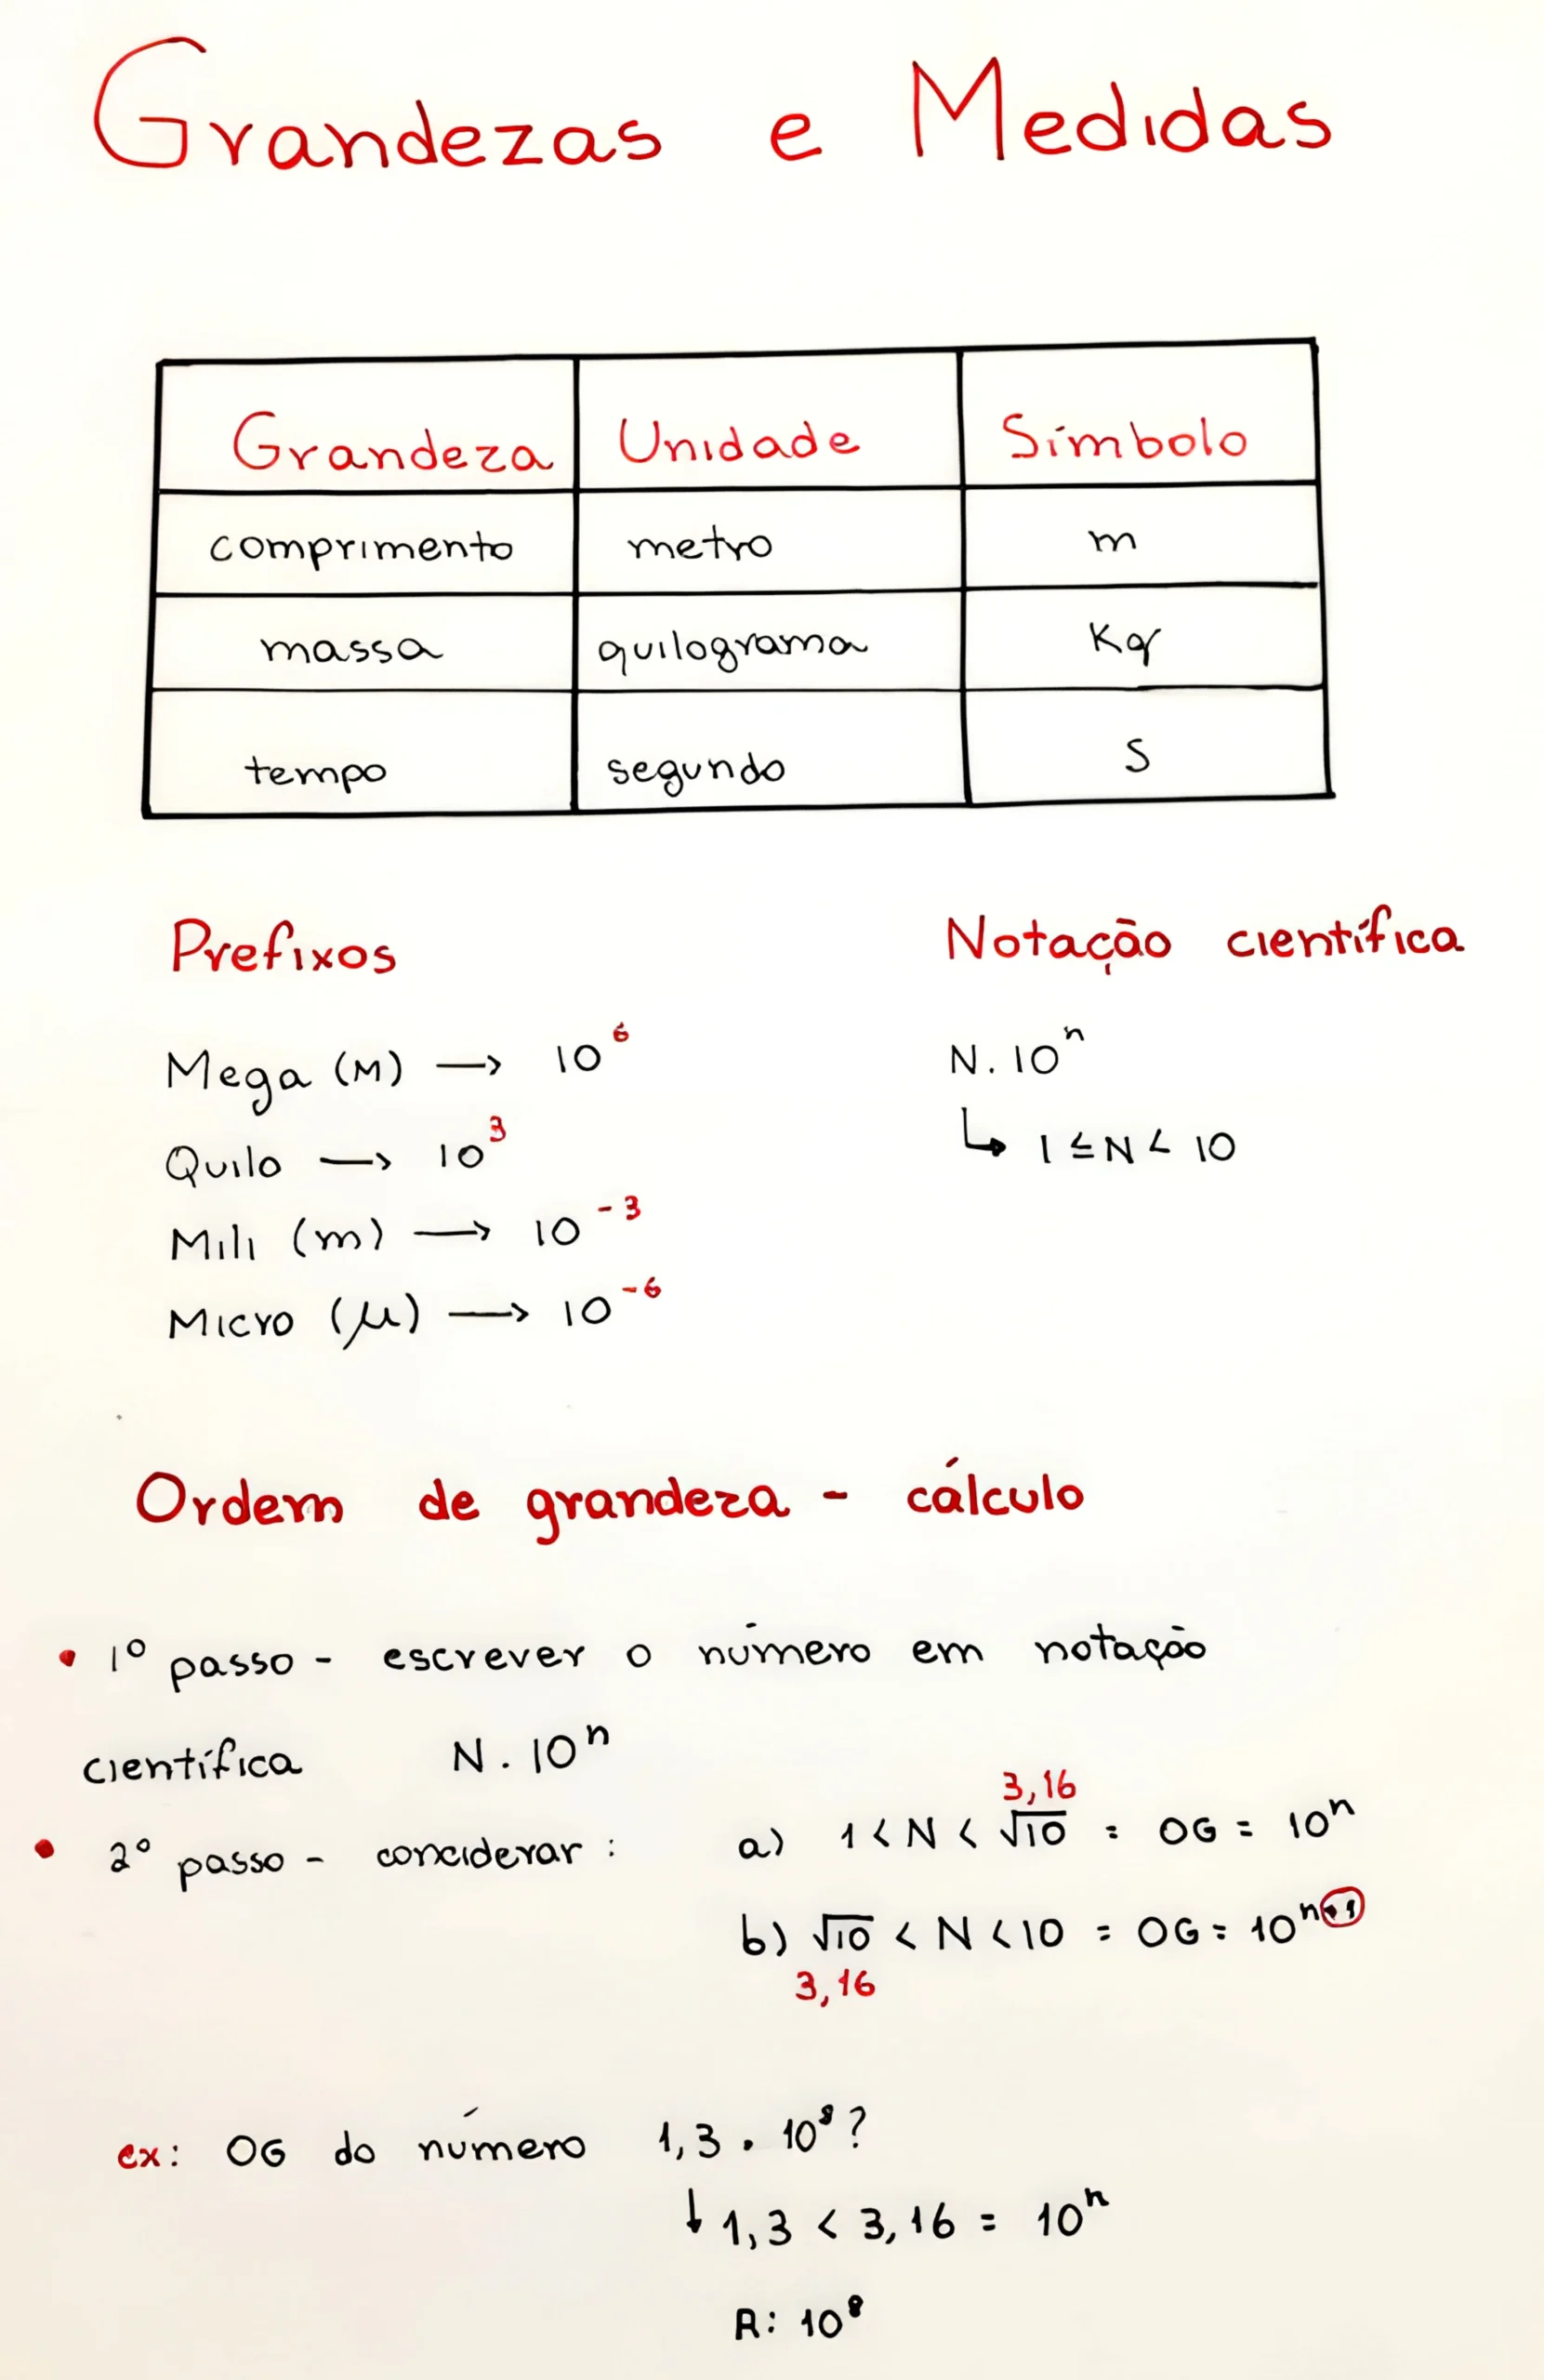 Grandezas e Medidas
Grandeza Unidade Símbolo
comprimento metro m
massa quilograma Kg
tempo segundo S
Prefixos Notação científica
Mega (M) → 10⁶ N. 10ⁿ
Quilo → 10³ ↳ 1 ≤ N < 10
Mili (m) → 10⁻³
Micro (μ) → 10⁻⁶
Ordem de grandeza - cálculo
• 1º passo - escrever o número em notação
científica N. 10ⁿ
3,16
• 2º passo - conciderar : a) 1 < N < √10 = OG = 10ⁿ
b) √10 < N < 10 = OG = 10ⁿ⁺¹
3,16
ex: OG do número 1,3 . 10⁸ ?
↓ 1,3 < 3,16 = 10ⁿ
R: 10⁸